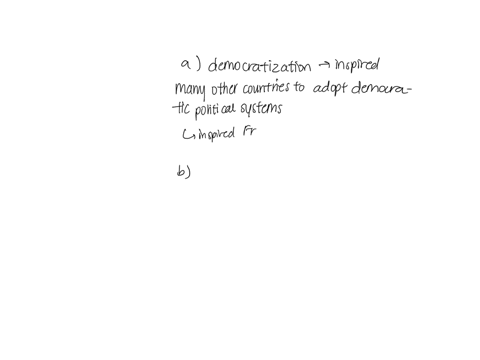 a) democratization → inspired
many other countries to adopt democra-
tic political systems
↳ inspired Fr
b)